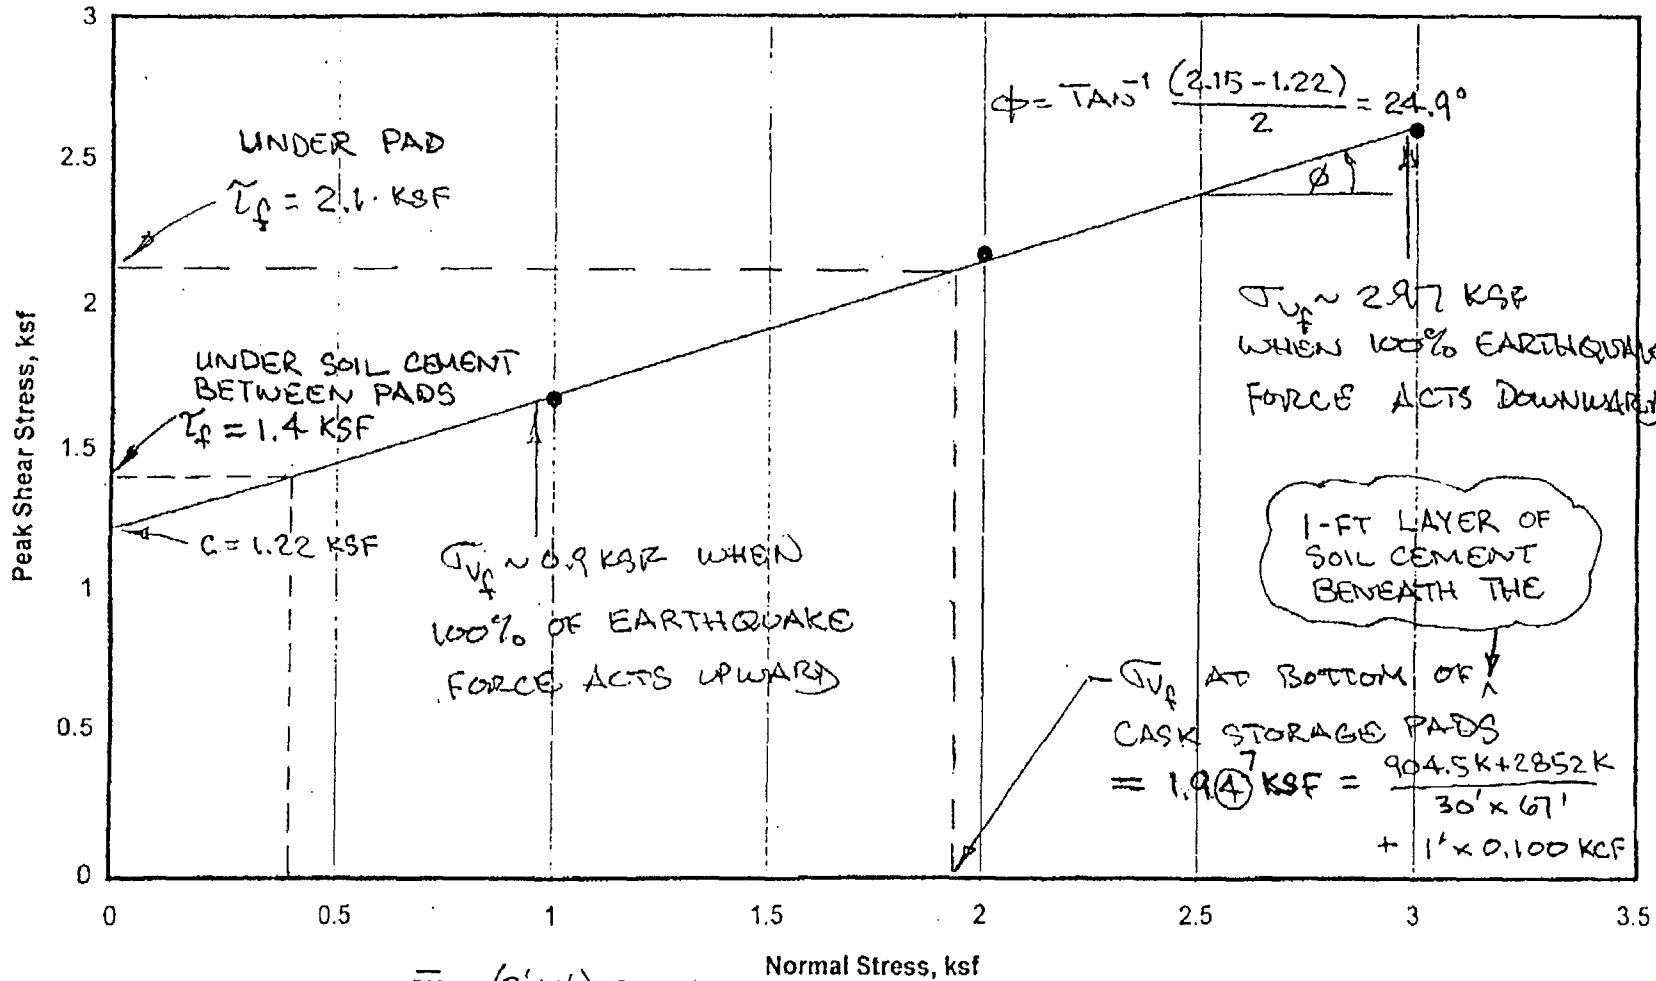 3
2.5
2
1.5
1
0.5
0
Peak Shear Stress, ksf
ϕ = TAN⁻¹ (2.15-1.22)/2 = 24.9°
UNDER PAD
τf = 2.1 KSF
UNDER SOIL CEMENT
BETWEEN PADS
τf = 1.4 KSF
C = 1.22 KSF
ϕ
σvf ~ 2.97 KSF
WHEN 100% EARTHQUAKE
FORCE ACTS DOWNWARD
σvf ~ 0.9 KSF WHEN
100% OF EARTHQUAKE
FORCE ACTS UPWARD
1-FT LAYER OF
SOIL CEMENT
BENEATH THE
σvf AT BOTTOM OF ^
CASK STORAGE PADS
= 1.94 7 KSF = 904.5K+2852K
30' x 67'
+ 1' x 0.100 KCF
0 0.5 1 1.5 2 2.5 3 3.5
Normal Stress, ksf